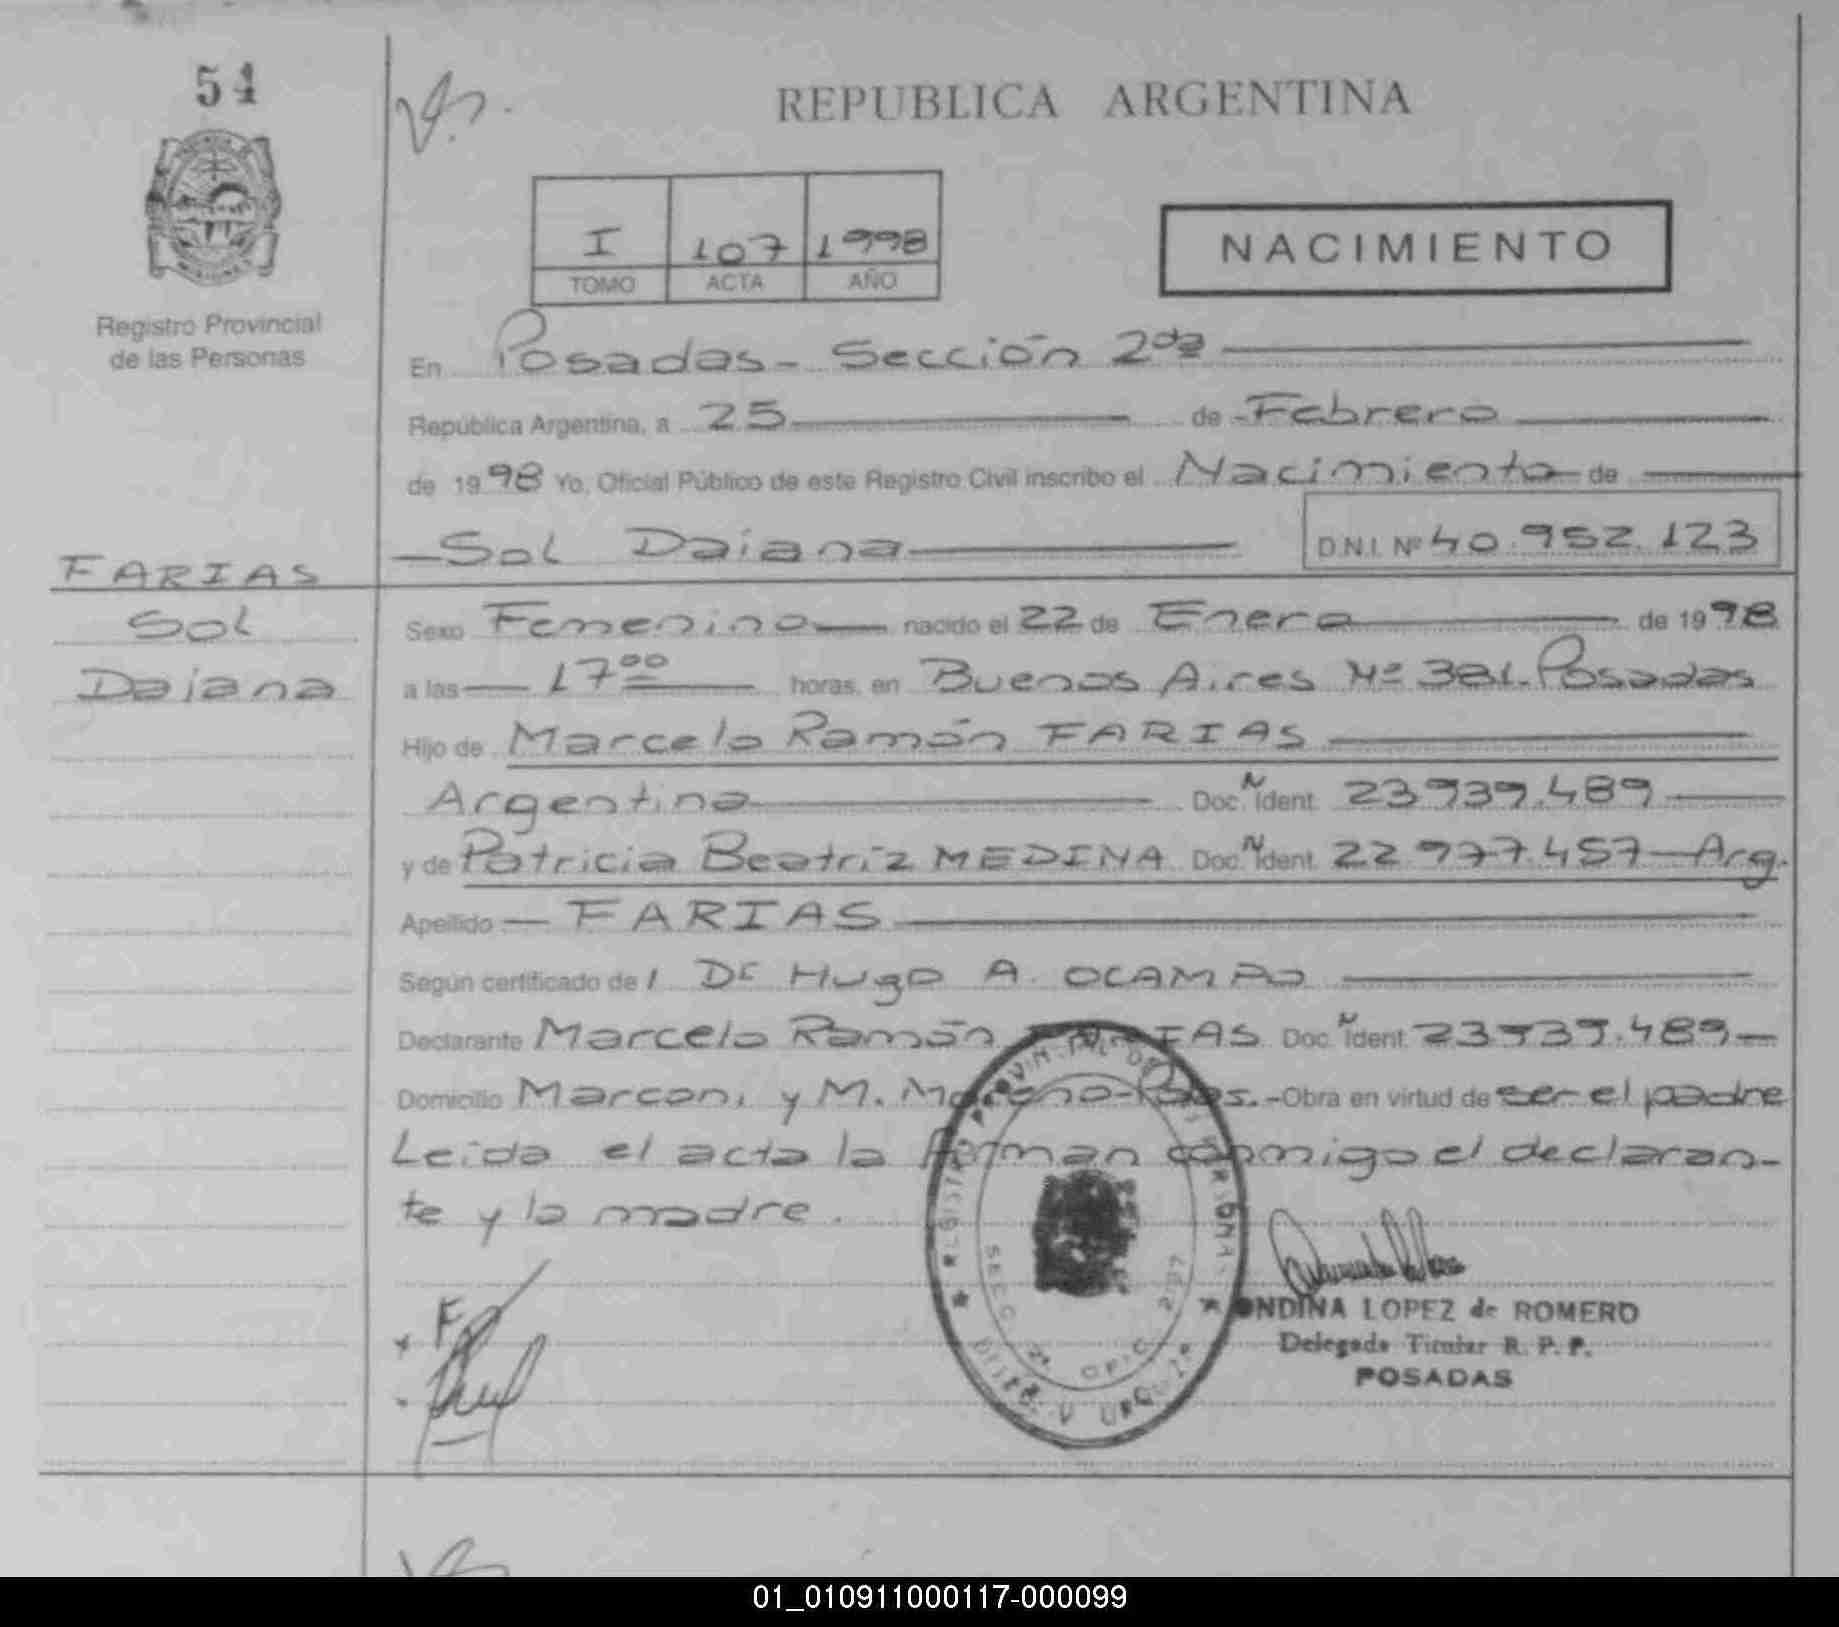 54
REPUBLICA ARGENTINA
I 107 1998
TOMO ACTA AÑO
NACIMIENTO
Registro Provincial
de las Personas
En Posadas - Sección 2da
República Argentina, a 25 de Febrero
de 1998 Yo, Oficial Público de este Registro Civil inscribo el Nacimiento de
Sol Daiana D.N.I. Nº 40.952.123
FARIAS
Sol
Daiana
Sexo Femenino nacido el 22 de Enero de 1998
a las 17 00 horas, en Buenos Aires Nº 381 - Posadas
Hijo de Marcelo Ramón FARIAS
Argentina Doc. N Ident. 23.939.489
y de Patricia Beatriz MEDINA Doc. N Ident. 22.977.457 - Arg.
Apellido FARIAS
Según certificado de l Dr Hugo A. OCAMPO
Declarante Marcelo Ramón FARIAS Doc. N Ident. 23.939.489 -
Domicilio Marconi y M. Moreno - Pdas. - Obra en virtud de ser el padre
Leida el acta la firman conmigo el declaran-
te y la madre.
REGISTRO PROVINCIAL DE LAS PERSONAS
SECC. 2ª OFIC.
ONDINA LOPEZ de ROMERO
Delegada Titular R. P. P.
POSADAS
01_010911000117-000099